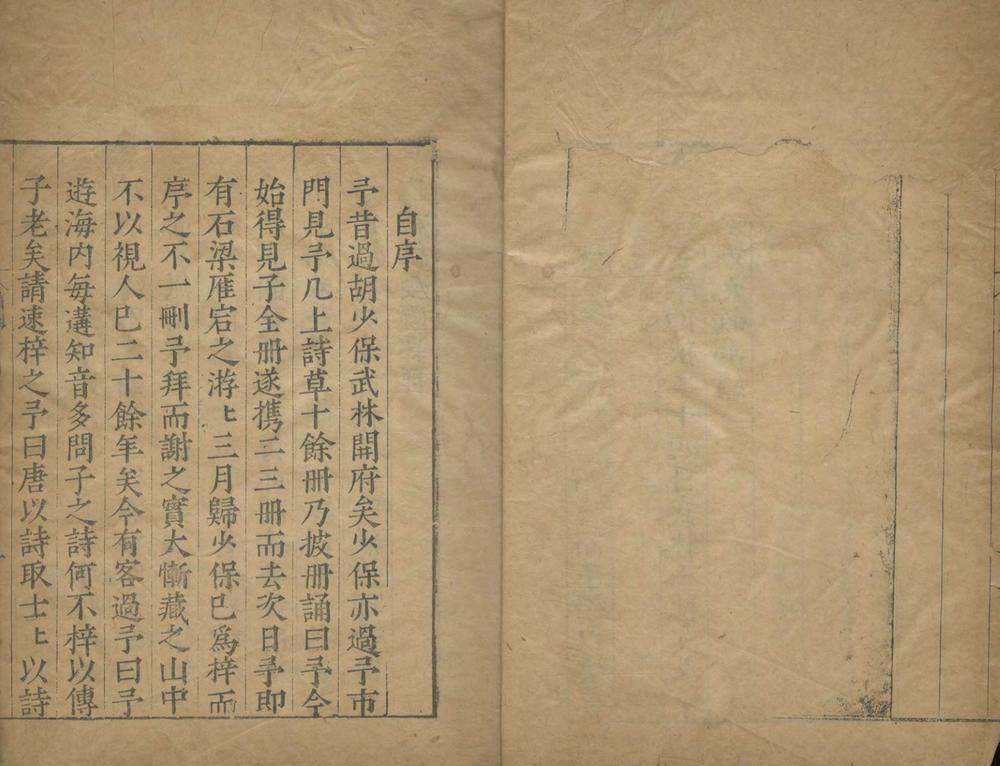 自序
予昔過胡少保武林開府矣少保亦過予市
門見予几上詩草十餘冊乃披冊誦曰予今
始得見子全冊遂携二三冊而去次日予即
有石梁雁宕之游〻三月歸少保已爲梓而
序之不一刪予拜而謝之實大慚藏之山中
不以視人已二十餘年矣今有客過予曰予
遊海内每遘知音多問子之詩何不梓以傳
子老矣請速梓之予曰唐以詩取士〻以詩